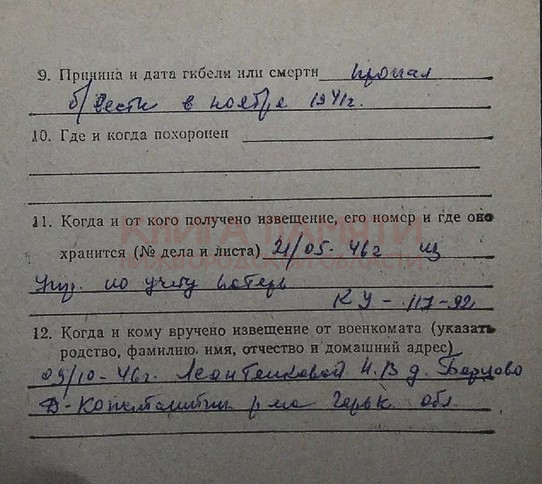 9. Причина и дата гибели или смерти пропал
б/вести в ноябре 1941г.
10. Где и когда похоронен
11. Когда и от кого получено извещение, его номер и где оно
КНИГА ПАМЯТИ
хранится (№ дела и листа) 21/05-46г из
ОБЛАСТИ
Упр. по учету потерь
КУ-117-92
12. Когда и кому вручено извещение от военкомата (указать
родство, фамилию, имя, отчество и домашний адрес)
09/10-46г. д.
Д-Константин. р-на Горьк. обл.